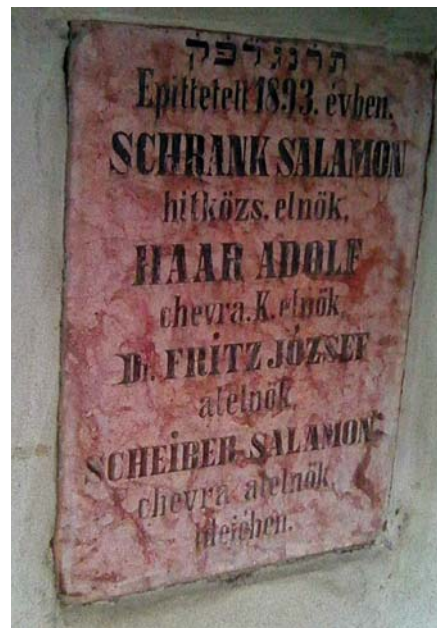 תרנג לפק
Epittetett 1893. évben.
SCHRANK SALAMON
hitközs. elnök,
HAAR ADOLF
chevra. K. elnök,
Dr. FRITZ JÓZSEF
alelnök,
SCHEIBER SALAMON
chevra alelnök,
idejében.